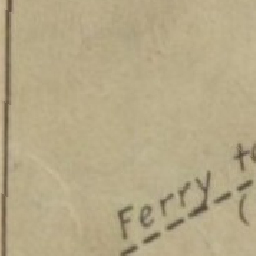 Ferry to
(